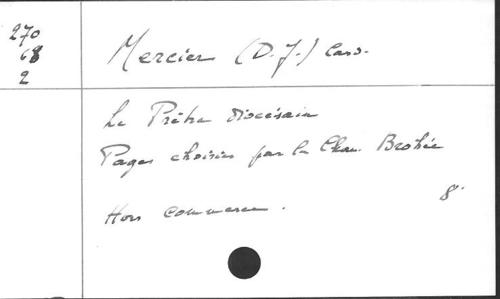 270
68
2
Mercier (D. J.) Card.
Le Prêtre diocésain
Pages choisies par le Chan. Brohée
Hors commerce.
8°